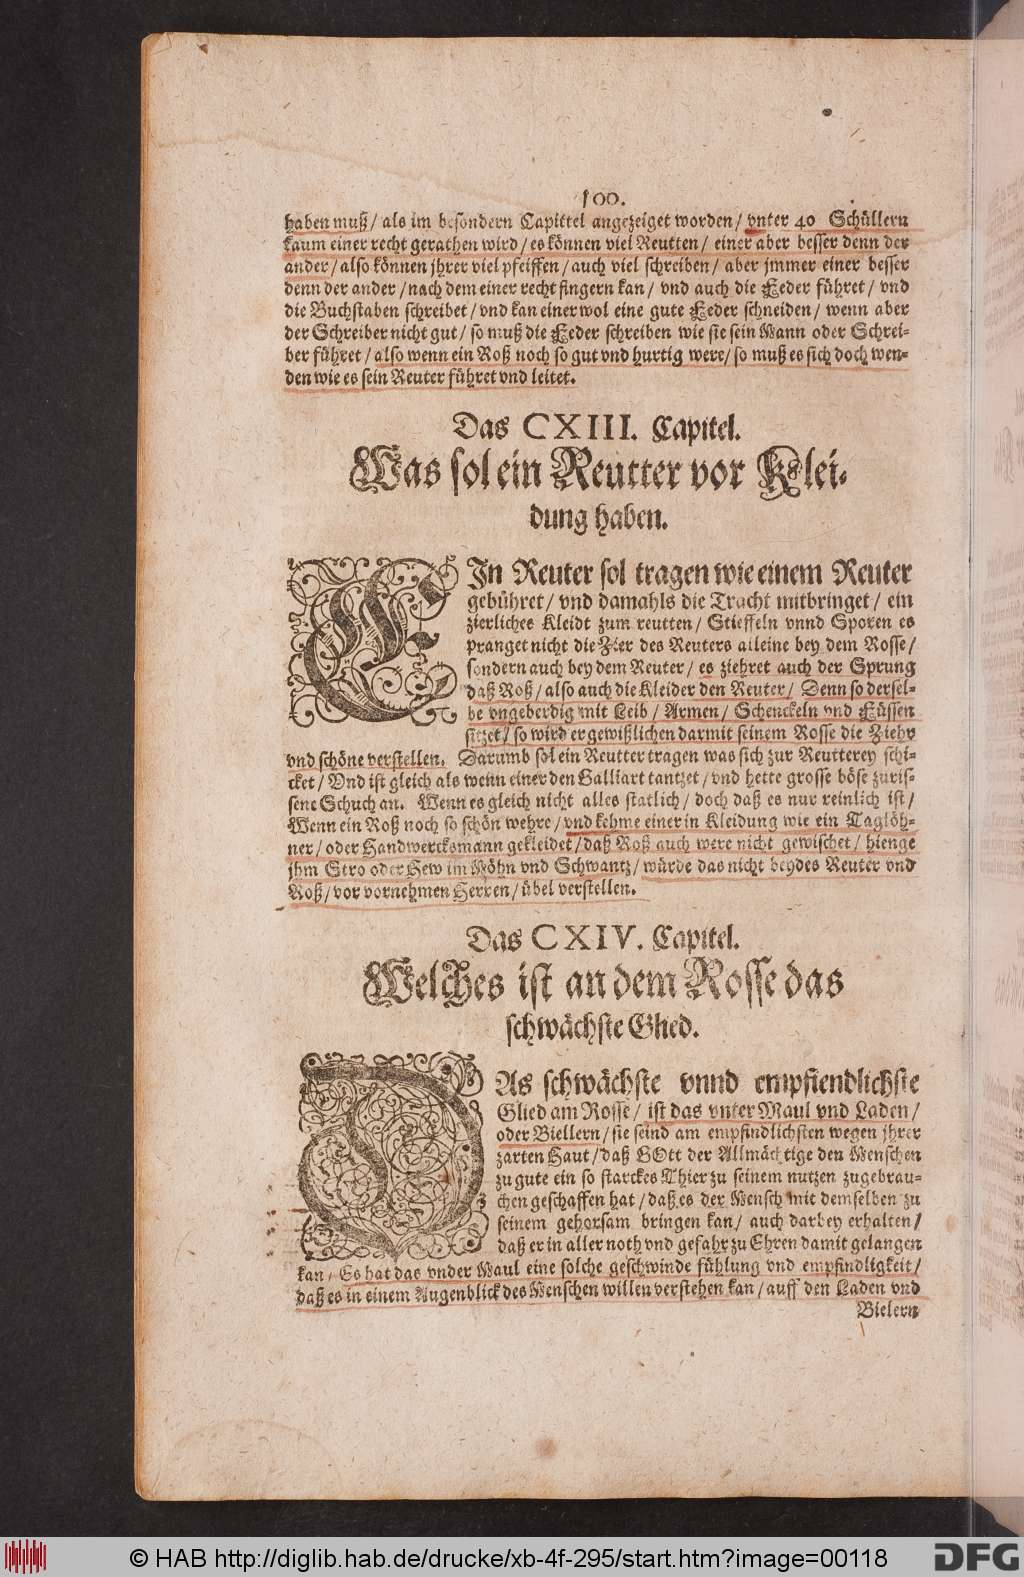 100.
haben muß / als im besondern Capittel angezeiget worden / vnter 40 Schüllern
kaum einer recht gerathen wird / es können viel Reutten / einer aber besser denn der
ander / also können jhrer viel pfeiffen / auch viel schreiben / aber jmmer einer besser
denn der ander / nach dem einer recht fingern kan / vnd auch die Feder führet / vnd
die Buchstaben schreibet / vnd kan einer wol eine gute Feder schneiden / wenn aber
der Schreiber nicht gut / so muß die Feder schreiben wie sie sein Mann oder Schrei-
ber führet / also wenn ein Roß noch so gut vnd hurtig were / so muß es sich doch wen-
den wie es sein Reuter führet vnd leitet.
Das CXIII. Capitel.
Was sol ein Reutter vor Klei-
dung haben.
EIn Reuter sol tragen wie einem Reuter
gebühret / vnd damahls die Tracht mitbringet / ein
zierliches Kleidt zum reutten / Stieffeln vnnd Sporen es
pranget nicht die Zier des Reuters alleine bey dem Rosse /
sondern auch bey dem Reuter / es ziehret auch der Sprung
daß Roß / also auch die Kleider den Reuter / Denn so dersel-
be vngeberdig mit Leib / Armen / Schenckeln vnd Füssen
sitzet / so wird er gewißlichen darmit seinem Rosse die Ziehr
vnd schöne verstellen. Darumb sol ein Reutter tragen was sich zur Reutterey schi-
cket / Vnd ist gleich als wenn einer den Galliart tantzet / vnd hette grosse böse zuris-
sene Schuch an. Wenn es gleich nicht alles statlich / doch daß es nur reinlich ist /
Wenn ein Roß noch so schön wehre / vnd kehme einer in Kleidung wie ein Taglöh-
ner / oder Handwercksmann gekleidet / daß Roß auch were nicht gewischet / hienge
jhm Stro oder Hew im Möhn vnd Schwantz / würde das nicht beydes Reuter vnd
Roß / vor vornehmen Herren / übel verstellen.
Das CXIV. Capitel.
Welches ist an dem Rosse das
schwächste Glied.
DAs schwächste vnnd empfiendlichste
Glied am Rosse / ist das vnter Maul vnd Laden /
oder Biellern / sie seind am empfindlichsten wegen jhrer
zarten Haut / daß GOtt der Allmächtige den Menschen
zu gute ein so starckes Thier zu seinem nutzen zugebrau-
chen geschaffen hat / daß es der Mensch mit demselben zu
seinem gehorsam bringen kan / auch darbey erhalten /
daß er in aller noth vnd gefahr zu Ehren damit gelangen
kan / Es hat das vnder Maul eine solche geschwinde fühlung vnd empfindligkeit /
daß es in einem Augenblick des Menschen willen verstehen kan / auff den Laden vnd
Bielern
© HAB http://diglib.hab.de/drucke/xb-4f-295/start.htm?image=00118
DFG